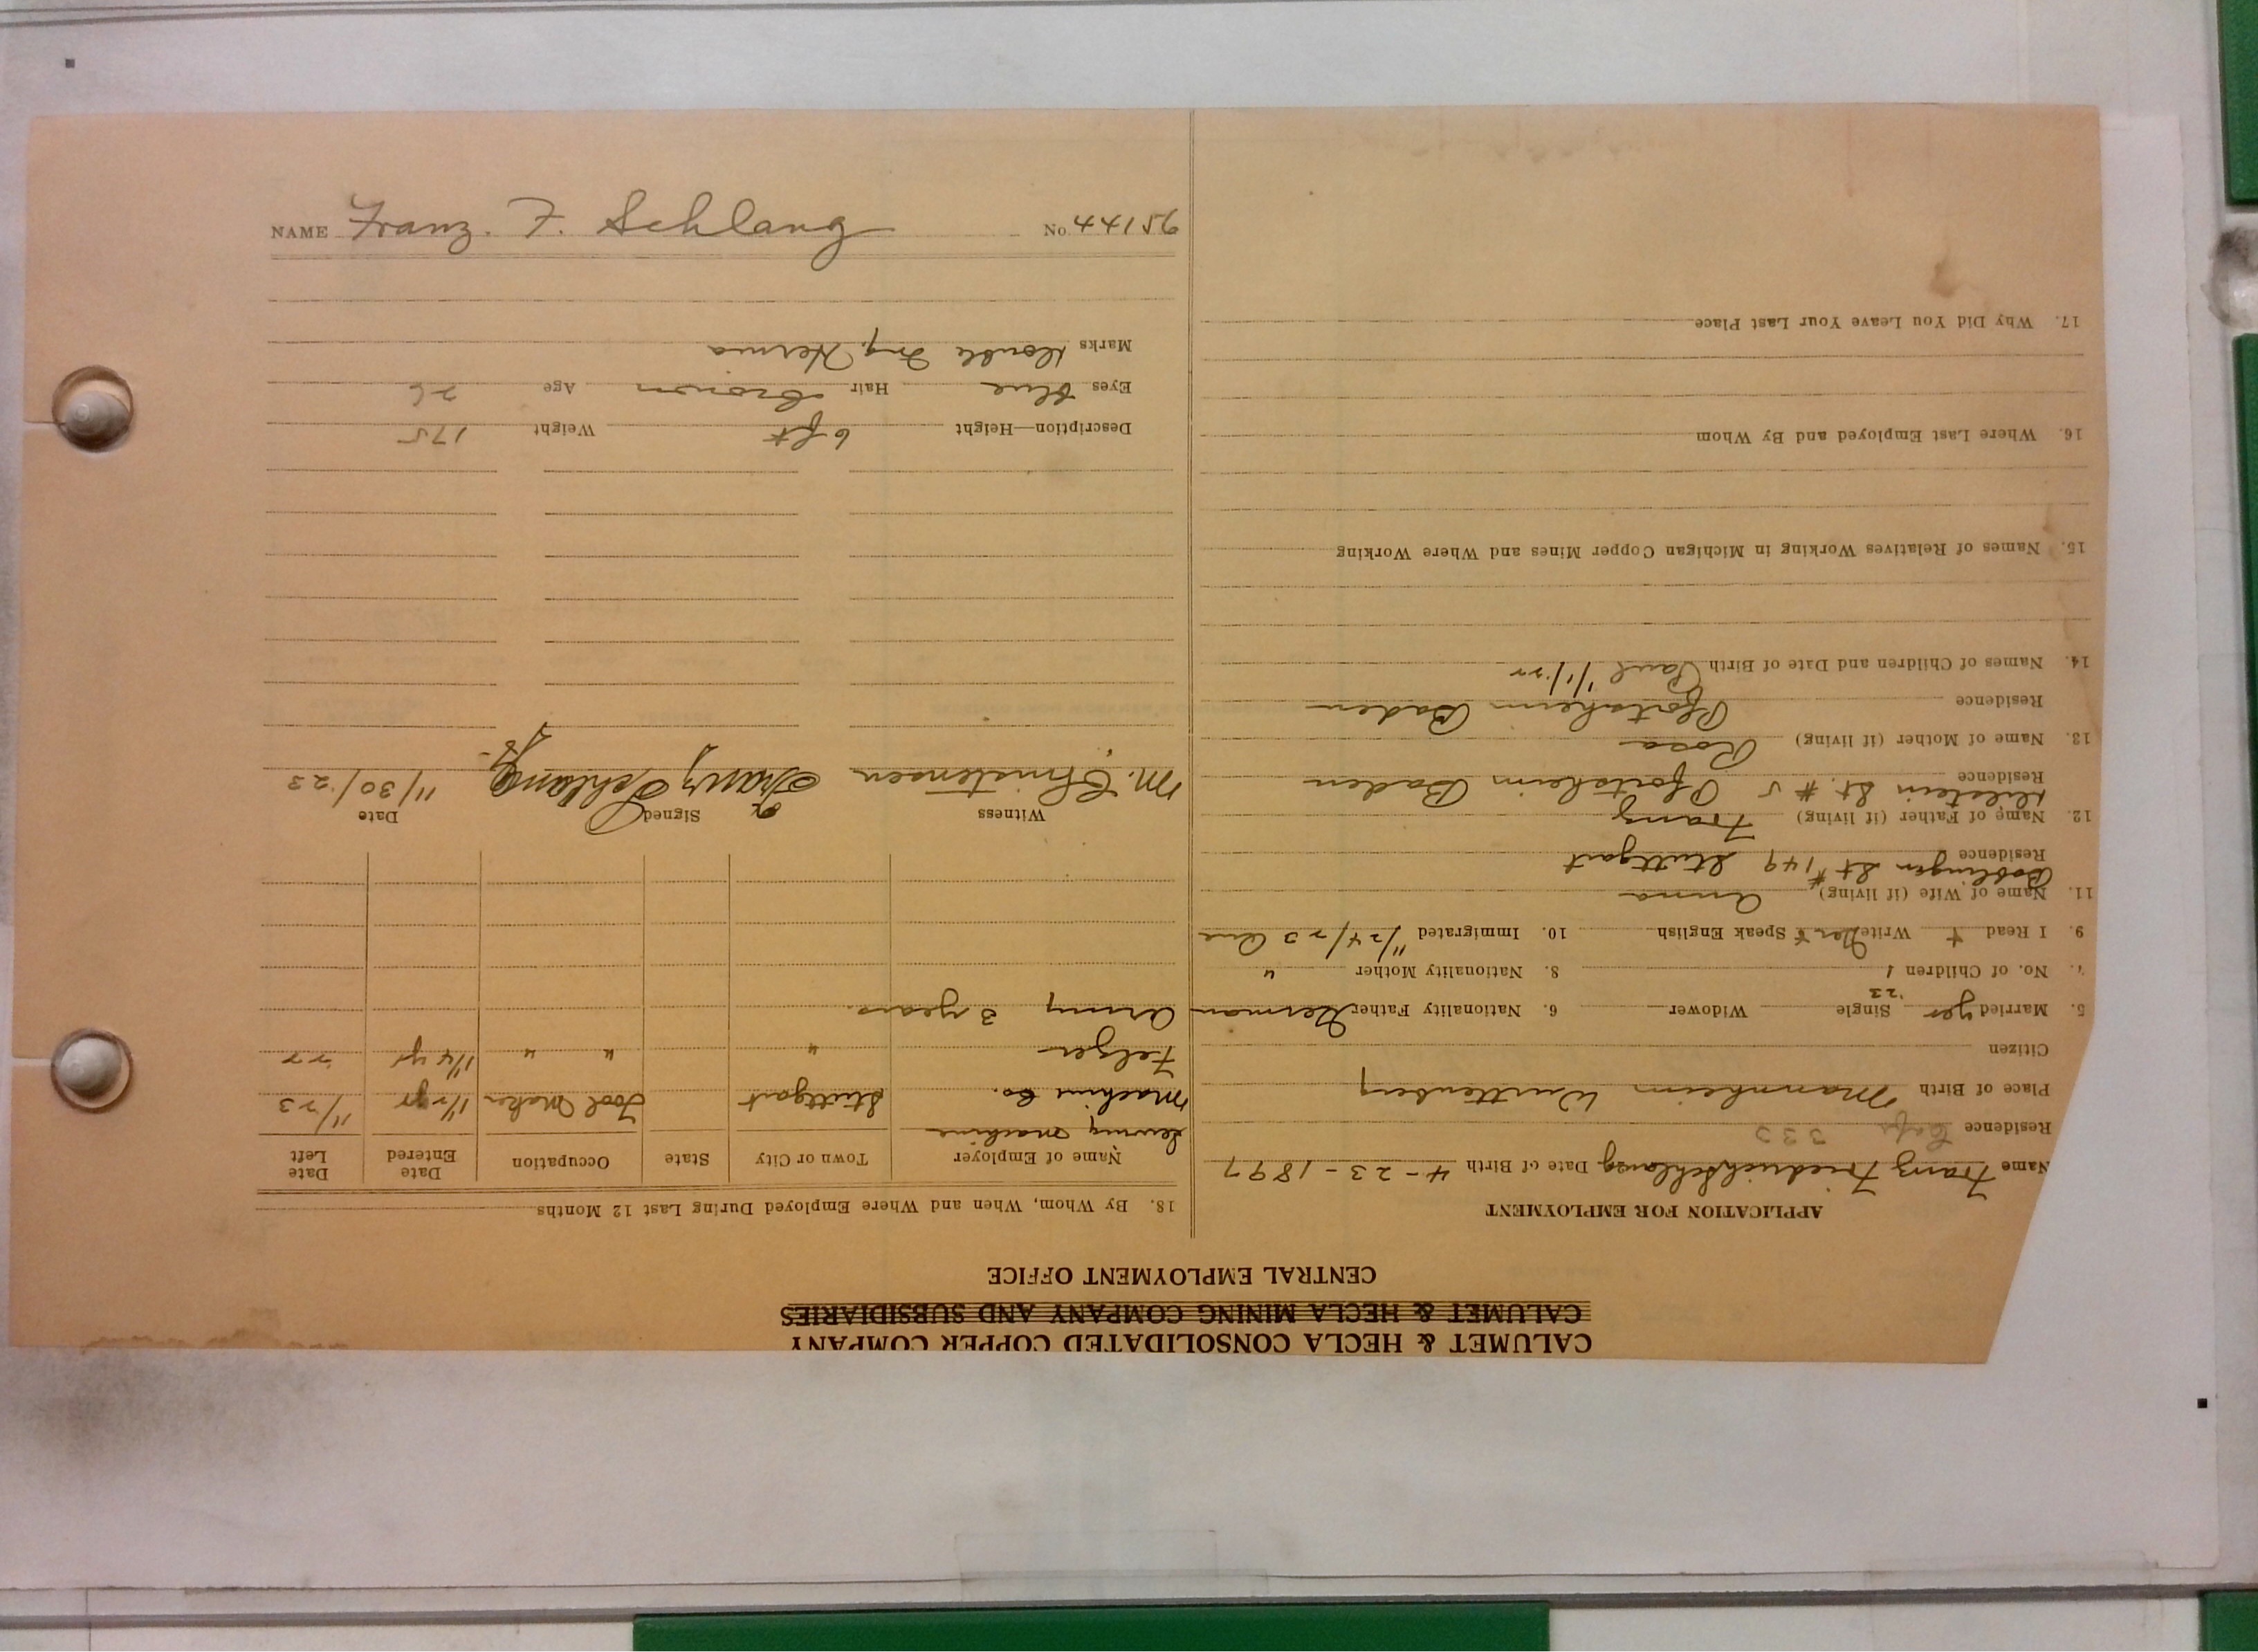 NAME Franz. F. Schlang No. 44156
CALUMET & HECLA CONSOLIDATED COPPER COMPANY
CALUMET & HECLA MINING COMPANY AND SUBSIDIARIES
CENTRAL EMPLOYMENT OFFICE
APPLICATION FOR EMPLOYMENT
Name Franz Friedrich Schlang Date of Birth 4-23-1897
Residence 333
Place of Birth Mannheim Wurttenberg
Citizen
5. Married yes Single '23 Widower 6. Nationality Father German
7. No. of Children 1 8. Nationality Mother "
9. I Read + Write Ger + Speak English 10. Immigrated 11/24/23
11. Name of Wife (if living) Anna
Residence Boblinger St #149 Stuttgart
12. Name of Father (if living) Franz
Residence St. #5 Pfortzheim Baden
13. Name of Mother (if living) Rosa
Residence Pfortzheim Baden
14. Names of Children and Date of Birth Paul 1/1/22
15. Names of Relatives Working in Michigan Copper Mines and Where Working
16. Where Last Employed and By Whom
17. Why Did You Leave Your Last Place
18. By Whom, When and Where Employed During Last 12 Months
Name of Employer Town or City State Occupation Date Entered Date Left
Sewing Machine
Machine Co. Stuttgart Tool Maker 1 1/2 yr 11/23
Felzer " " " 1 1/4 yr 22
Army 3 years.
Witness Signed Date
M. Christensen Franz Schlang 11/30/23
Description—Height 6 ft Weight 175
Eyes blue Hair brown Age 26
Marks Double Ing. Hernia